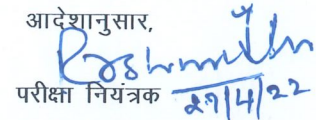 आदेशानुसार,
परीक्षा नियंत्रक 27/4/22